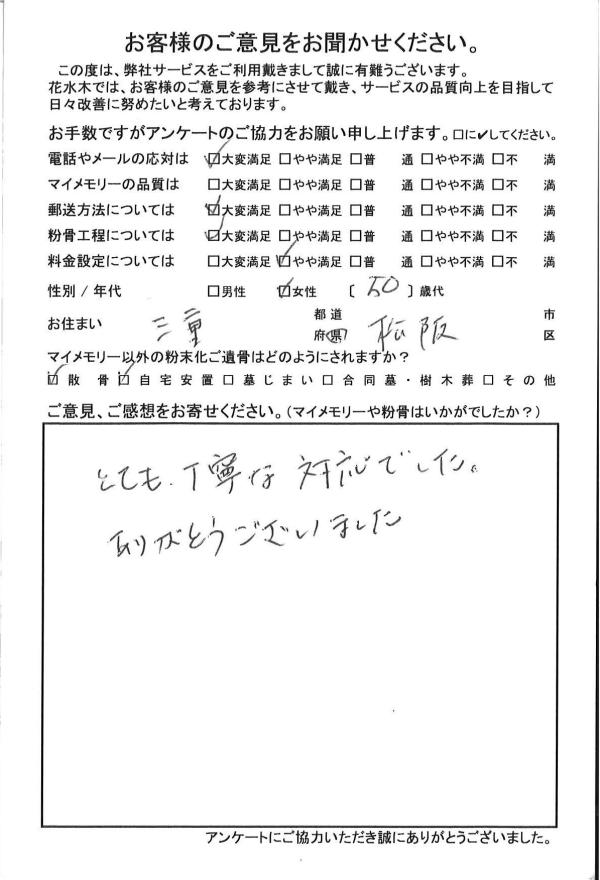 お客様のご意見をお聞かせください。
この度は、弊社サービスをご利用戴きまして誠に有難うございます。
花水木では、お客様のご意見を参考にさせて戴き、サービスの品質向上を目指して
日々改善に努めたいと考えております。
お手数ですがアンケートのご協力をお願い申し上げます。□に✔してください。
電話やメールの応対は ☑大変満足 □やや満足 □普 通 □やや不満 □不 満
マイメモリーの品質は □大変満足 □やや満足 □普 通 □やや不満 □不 満
郵送方法については ☑大変満足 □やや満足 □普 通 □やや不満 □不 満
粉骨工程については ☑大変満足 □やや満足 □普 通 □やや不満 □不 満
料金設定については □大変満足 ☑やや満足 □普 通 □やや不満 □不 満
性別 / 年代 □男性 ☑女性 〔 50 〕歳代
お住まい 三重 都道府県 松阪 市区
マイメモリー以外の粉末化ご遺骨はどのようにされますか?
☑散 骨 ☑自 宅 安 置 □墓 じ ま い □合 同 墓・樹 木 葬 □そ の 他
ご意見、ご感想をお寄せください。(マイメモリーや粉骨はいかがでしたか?)
とても、丁寧な対応でした。
ありがとうございました
アンケートにご協力いただき誠にありがとうございました。